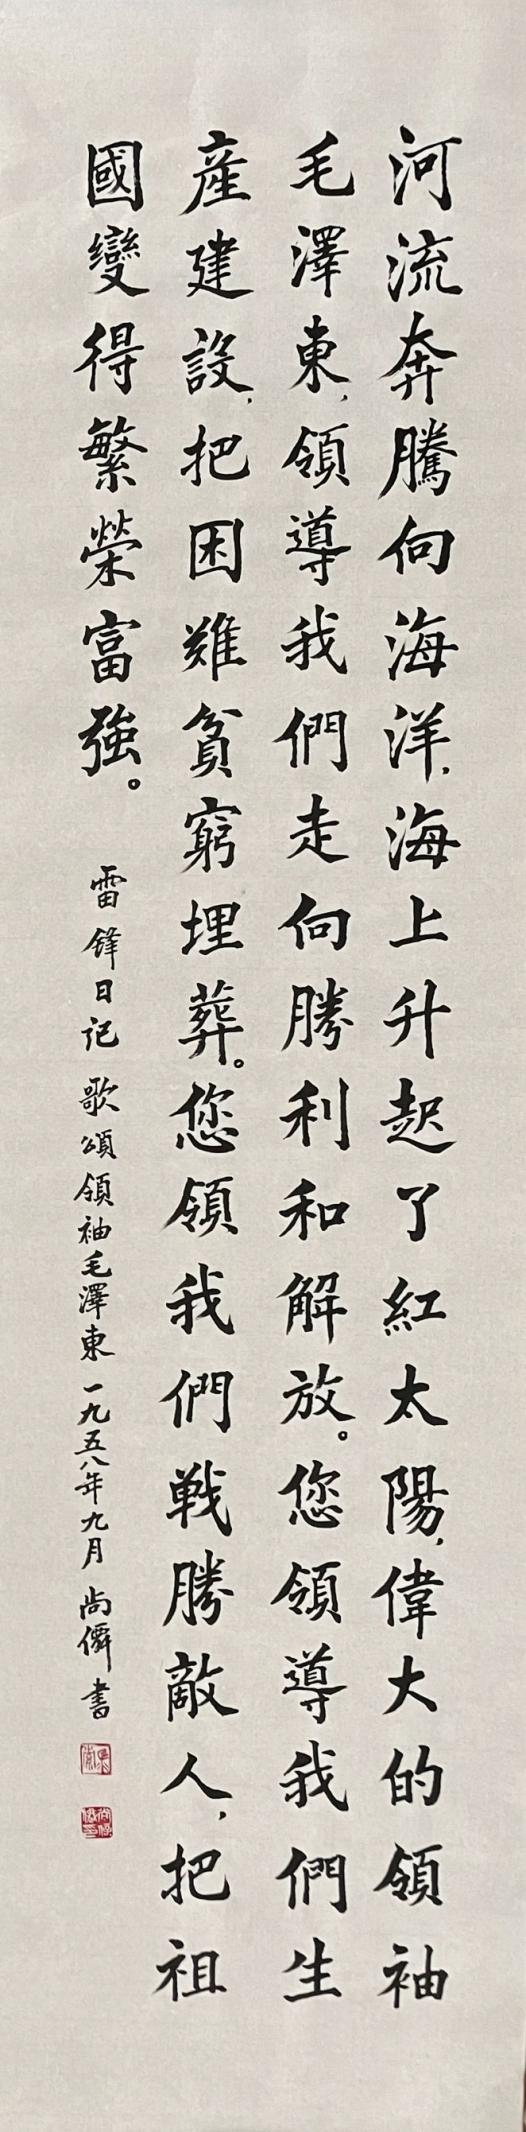 河流奔騰向海洋，海上升起了紅太陽，偉大的領袖
毛澤東，領導我們走向勝利和解放。您領導我們生
產建設，把困難貧窮埋葬。您領我們戰勝敵人，把祖
國變得繁榮富強。
雷鋒日記 歌頌領袖毛澤東 一九五八年九月 尚儛書